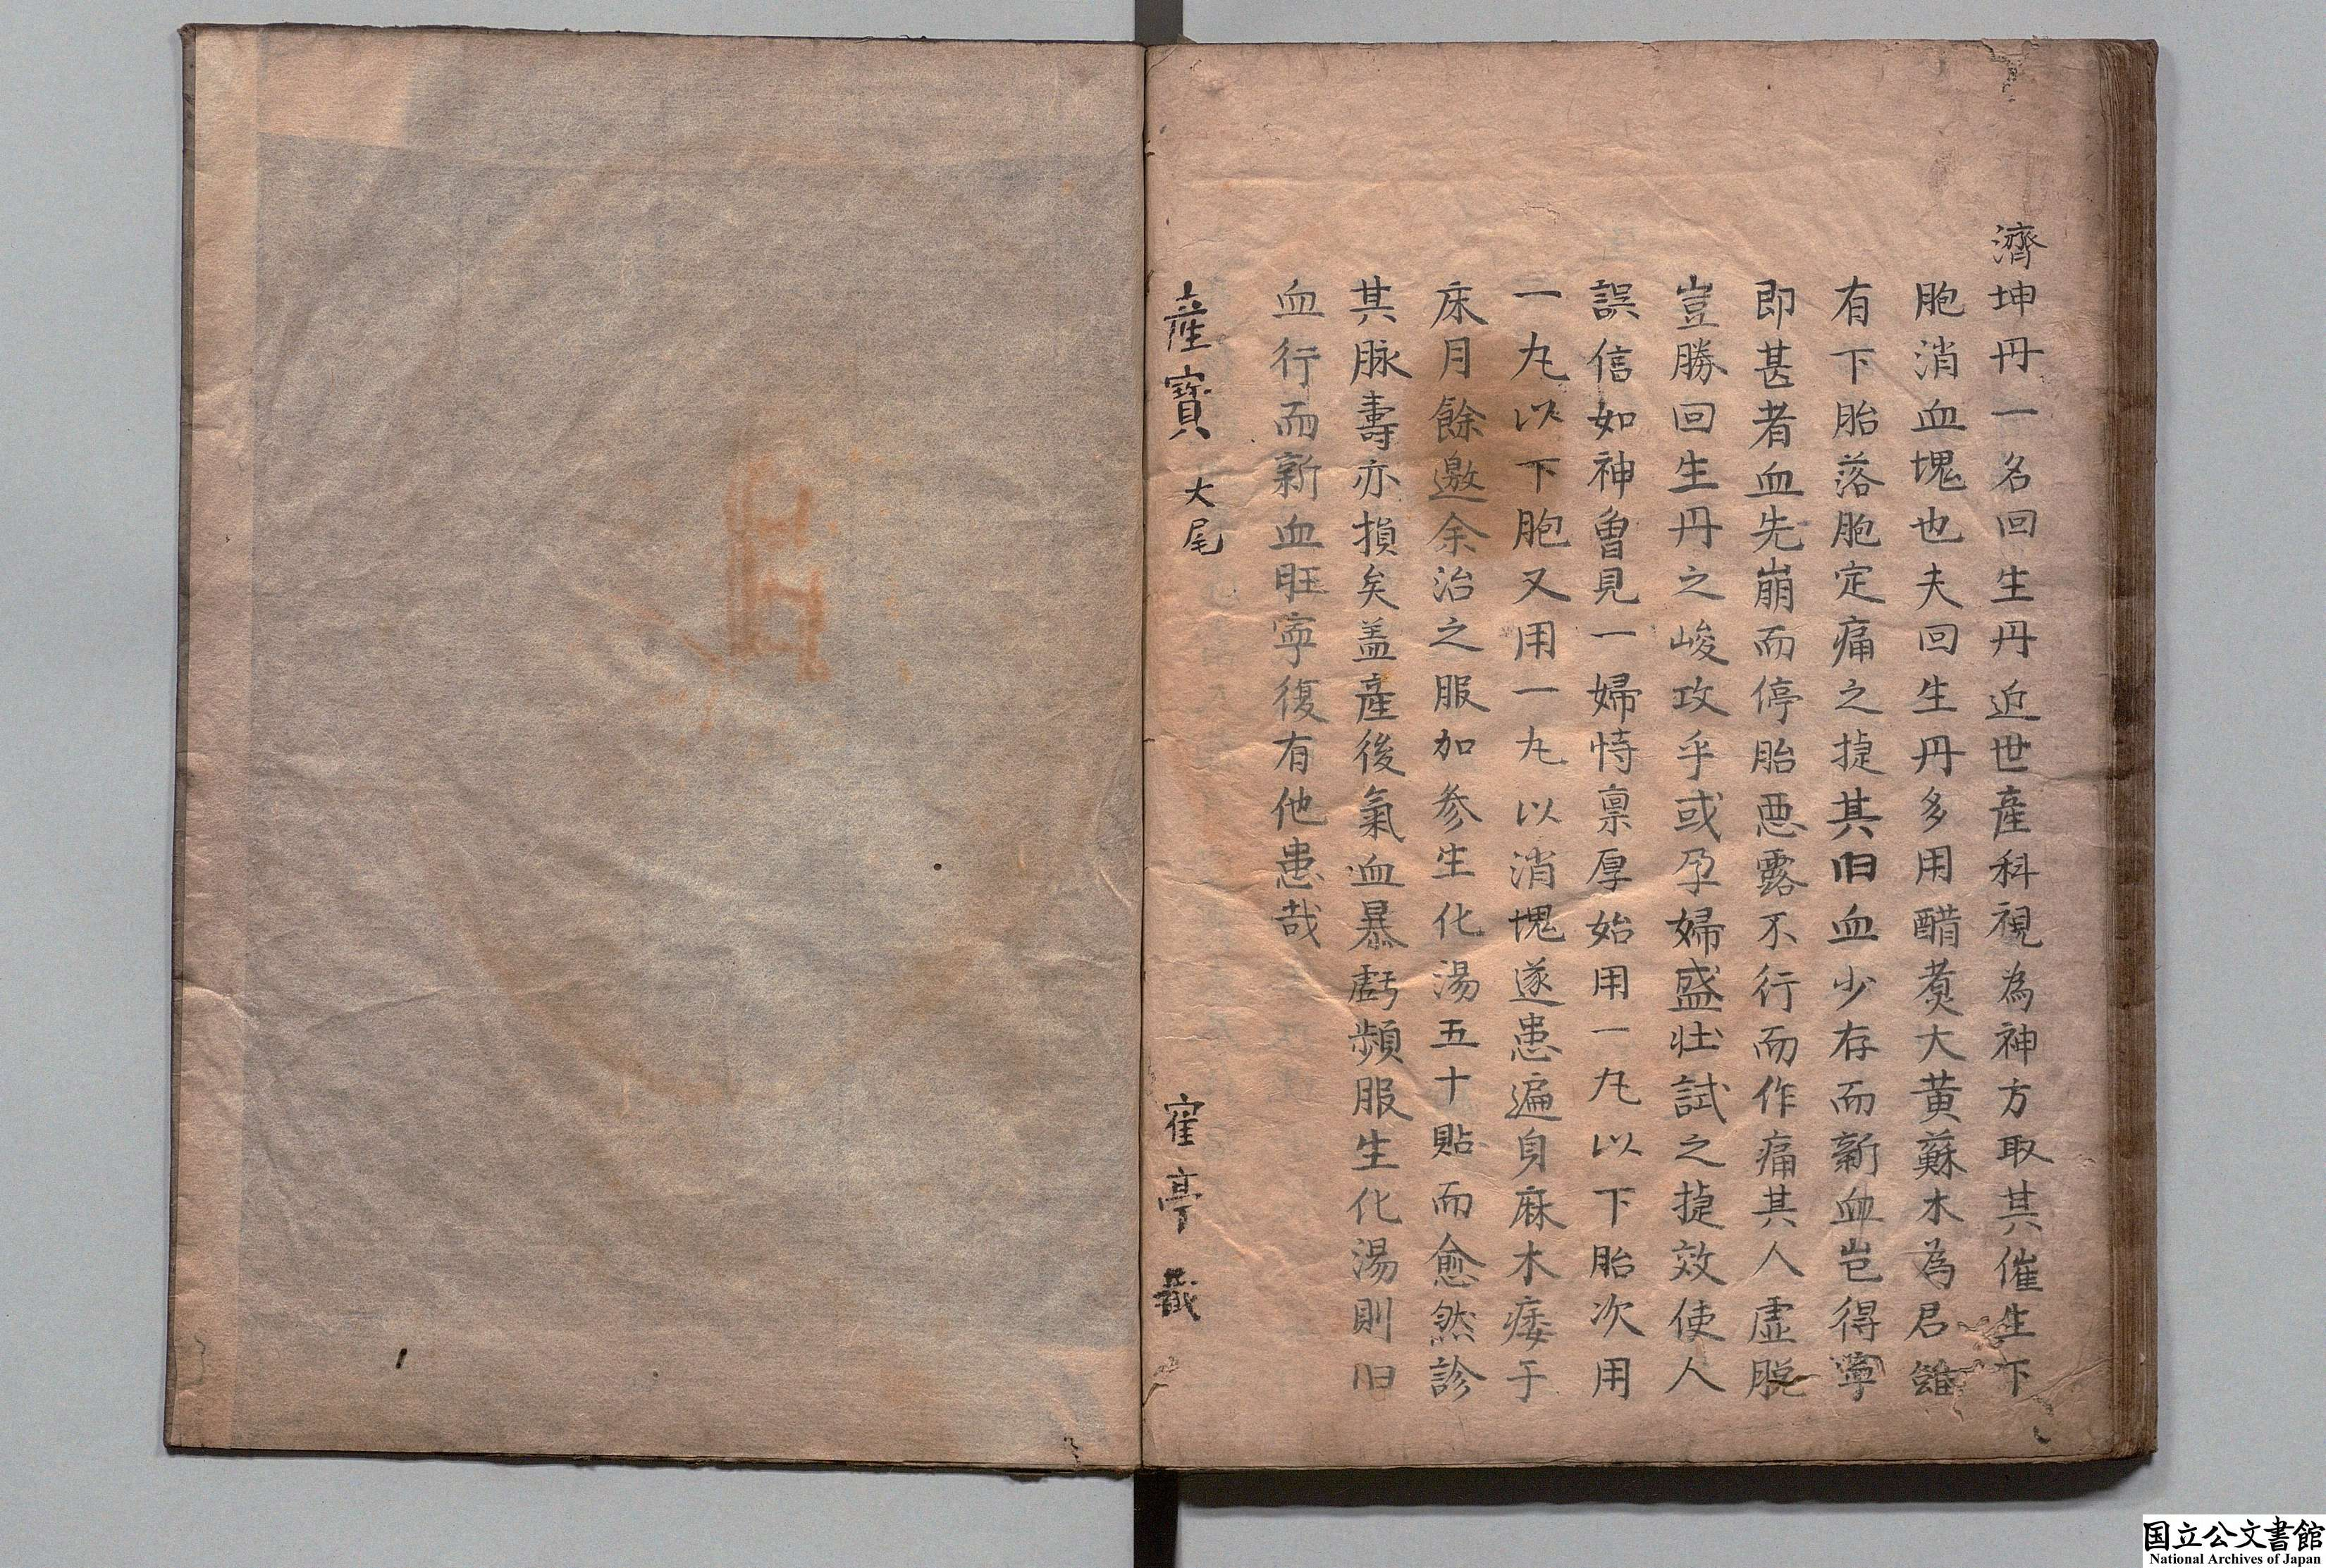 濟坤丹一名回生丹近世産科視為神方取其催生下
胞消血塊也夫回生丹多用醋煑大黄蘇木為君雖
有下胎落胞定痛之捷其旧血少存而新血岂得寧
即甚者血先崩而停胎悪露不行而作痛其人虚脱
豈勝回生丹之峻攻乎或孕婦盛壮試之捷效使人
誤信如神曽見一婦恃禀厚始用一九以下胎次用
一九以下胞又用一九以消塊遂患遍身麻木痿于
床月餘邀余治之服加参生化湯五十貼而愈然診
其脉壽亦損矣盖産後氣血暴虧頻服生化湯則旧
血行而新血旺寕復有他患哉
産寳大尾
寉亭
国立公文書館
National Archives of Japan